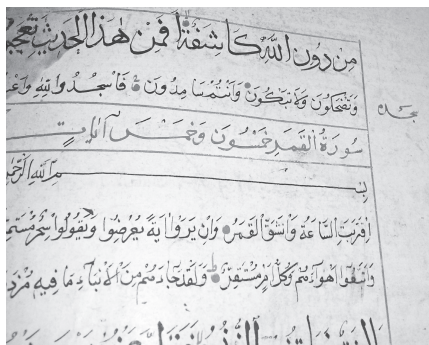 مِن دُونِ اللَّهِ كَاشِفَةٌ أَفَمِنْ هَٰذَا الْحَدِيثِ تَعْجَبُ
وَتَضْحَكُونَ وَلَا تَبْكُونَ وَأَنتُمْ سَامِدُونَ فَاسْجُدُوا لِلَّهِ وَاعْ
سجده
سُورَةُ الْقَمَرِ خَمْسُونَ وَخَمْسَ آيَاتٍ
بِسْمِ اللَّهِ الرَّحْمَ
اقْتَرَبَتِ السَّاعَةُ وَانشَقَّ الْقَمَرُ وَإِن يَرَوْا آيَةً يُعْرِضُوا وَيَقُولُوا سِحْرٌ مُّسْتَمِ
وَاتَّبَعُوا أَهْوَاءَهُمْ وَكُلُّ أَمْرٍ مُّسْتَقِرٌّ وَلَقَدْ جَاءَهُم مِّنَ الْأَنبَاءِ مَا فِيهِ مُزْدَ